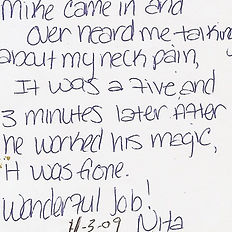 Mike came in and
over heard me talking
about my neck pain,
It was a five and
3 minutes later After
he worked his magic,
it was Gone.
Wonderful Job!
11-3-09 Nita